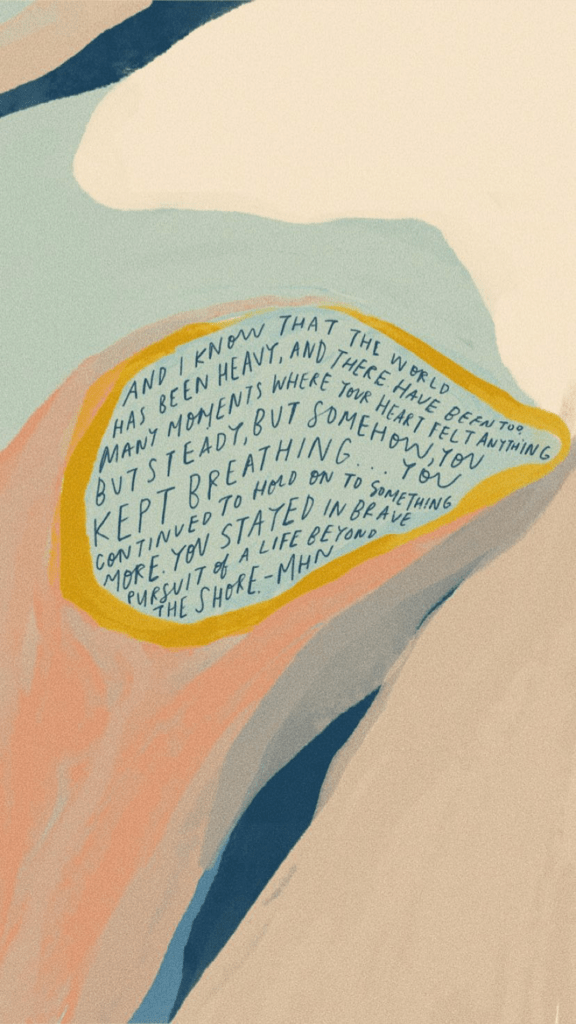 AND I KNOW THAT THE WORLD
HAS BEEN HEAVY, AND THERE HAVE BEEN TOO
MANY MOMENTS WHERE YOUR HEART FELT ANYTHING
BUT STEADY, BUT SOMEHOW, YOU
KEPT BREATHING... YOU
CONTINUED TO HOLD ON TO SOMETHING
MORE. YOU STAYED IN BRAVE
PURSUIT OF A LIFE BEYOND
THE SHORE. -MHN